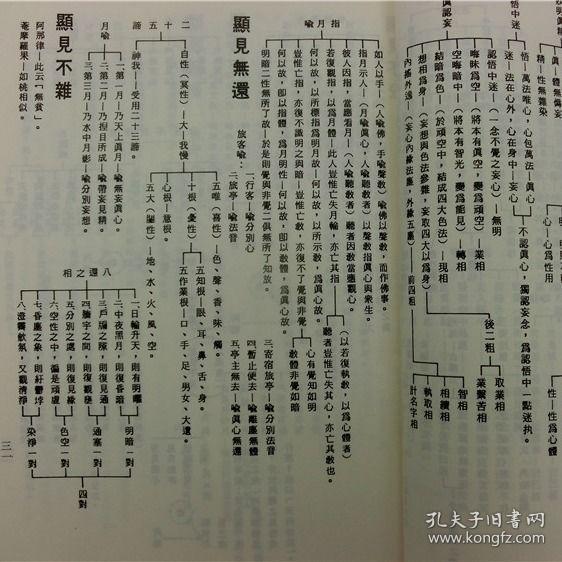 眞體無偏妄
精—性無雜染
心—心爲性用
性—性爲心體
認妄
眞
悟中迷
悟—萬法唯心，心包萬法—眞心
迷—法在心外，心在身中—妄心
不認眞心，獨認妄念，爲認悟中一點迷執。
認悟中迷—（一念不覺之妄心）—無明
晦昧爲空—（將本有眞空，變爲頑空）—業相
空晦暗中—（將本有智光，變爲能見）—轉相
結暗爲色—（於頑空中，結成四大色法）—現相
想相爲身—（妄想與色法參雜，妄取四大以爲身）
內搖外逸—（妄心內緣法塵，外緣五塵）
前四相
後二相
取業相
業繫苦相
智相
相續相
執取相
計名字相
指月喩
如人以手—（人喩佛，手喩聲教）喩佛以聲教，而作佛事。
指月示人—（月喩眞心，人喩聽教者）以聲教指眞心與衆生。
彼人因指，當應看月—（人喩聽教者）聽者因教當應觀心。
若復觀指，以爲月體—此人豈惟亡失月輪，亦亡其指
（以若復執教，以爲心體者）
聽者豈惟亡失其心，亦亡其教也。
何以故，以所標指爲明月故—何以故，以所示教，爲眞心故。
豈惟亡指，亦復不識明之與暗—豈惟亡教，亦復不了覺與非覺
心有覺知如明
教體非覺如暗
何以故，卽以指體，爲月明性—何以故，卽以教體，爲眞心故。
明暗二性無所了故—於是則覺與非覺二俱無所了知故。
顯見無還
旅客喩：
一行客—喩分別心
二旅亭—喩法音
三寄宿旅亭—喩分別法音
四暫止便去—喩離塵無體
五亭主無去—喩眞心無還
二十五諦
自性（冥性）—大—我慢
神我—受用二十三諦。
五唯（喜性）—色、聲、香、味、觸。
十根（憂性）
五知根—眼、耳、鼻、舌、身。
五作業根—口、手、足、男女、大遺。
心根—意根。
五大（闇性）—地、水、火、風、空。
月喩
一、第一月—乃天上眞月—喩無妄眞心。
二、第二月—乃揑目所成—喩帶妄見精。
三、第三月—乃水中月影—喩分別妄想。
八還之相
一、日輪升天，則有明曜
二、中夜黑月，則復昏暗
明暗一對
三、戶牖之隙，則復見通
四、牆宇之間，則復觀壅
通塞一對
五、分別之處，則復見緣
六、空性之中，徧是頑虛
色空一對
七、昏塵之象，則紆鬱㶿
八、澄霽歛氛，又觀清淨
染淨一對
四對
顯見不雜
阿那律—此云「無貧」。
菴摩羅果—如桃相似。
三一
孔夫子旧书网
www.kongfz.com